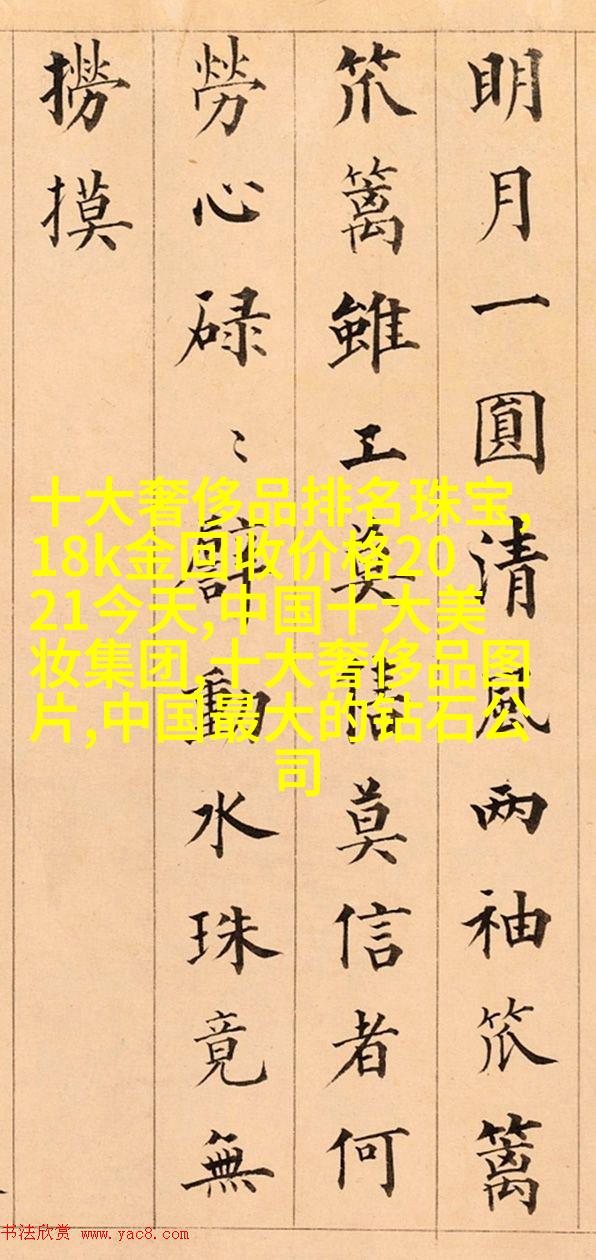 明月一圓清風两袖笊篱
笊篱雖工莫莫信者何
勞心碌〻動水珠竟無
撈摸
十大奢侈品排名珠宝,
18k金回收价格20
21今天,中国十大美
妆集团,十大奢侈品图
片,中国最大的钻石公
司
书法欣赏 www.yac8.com